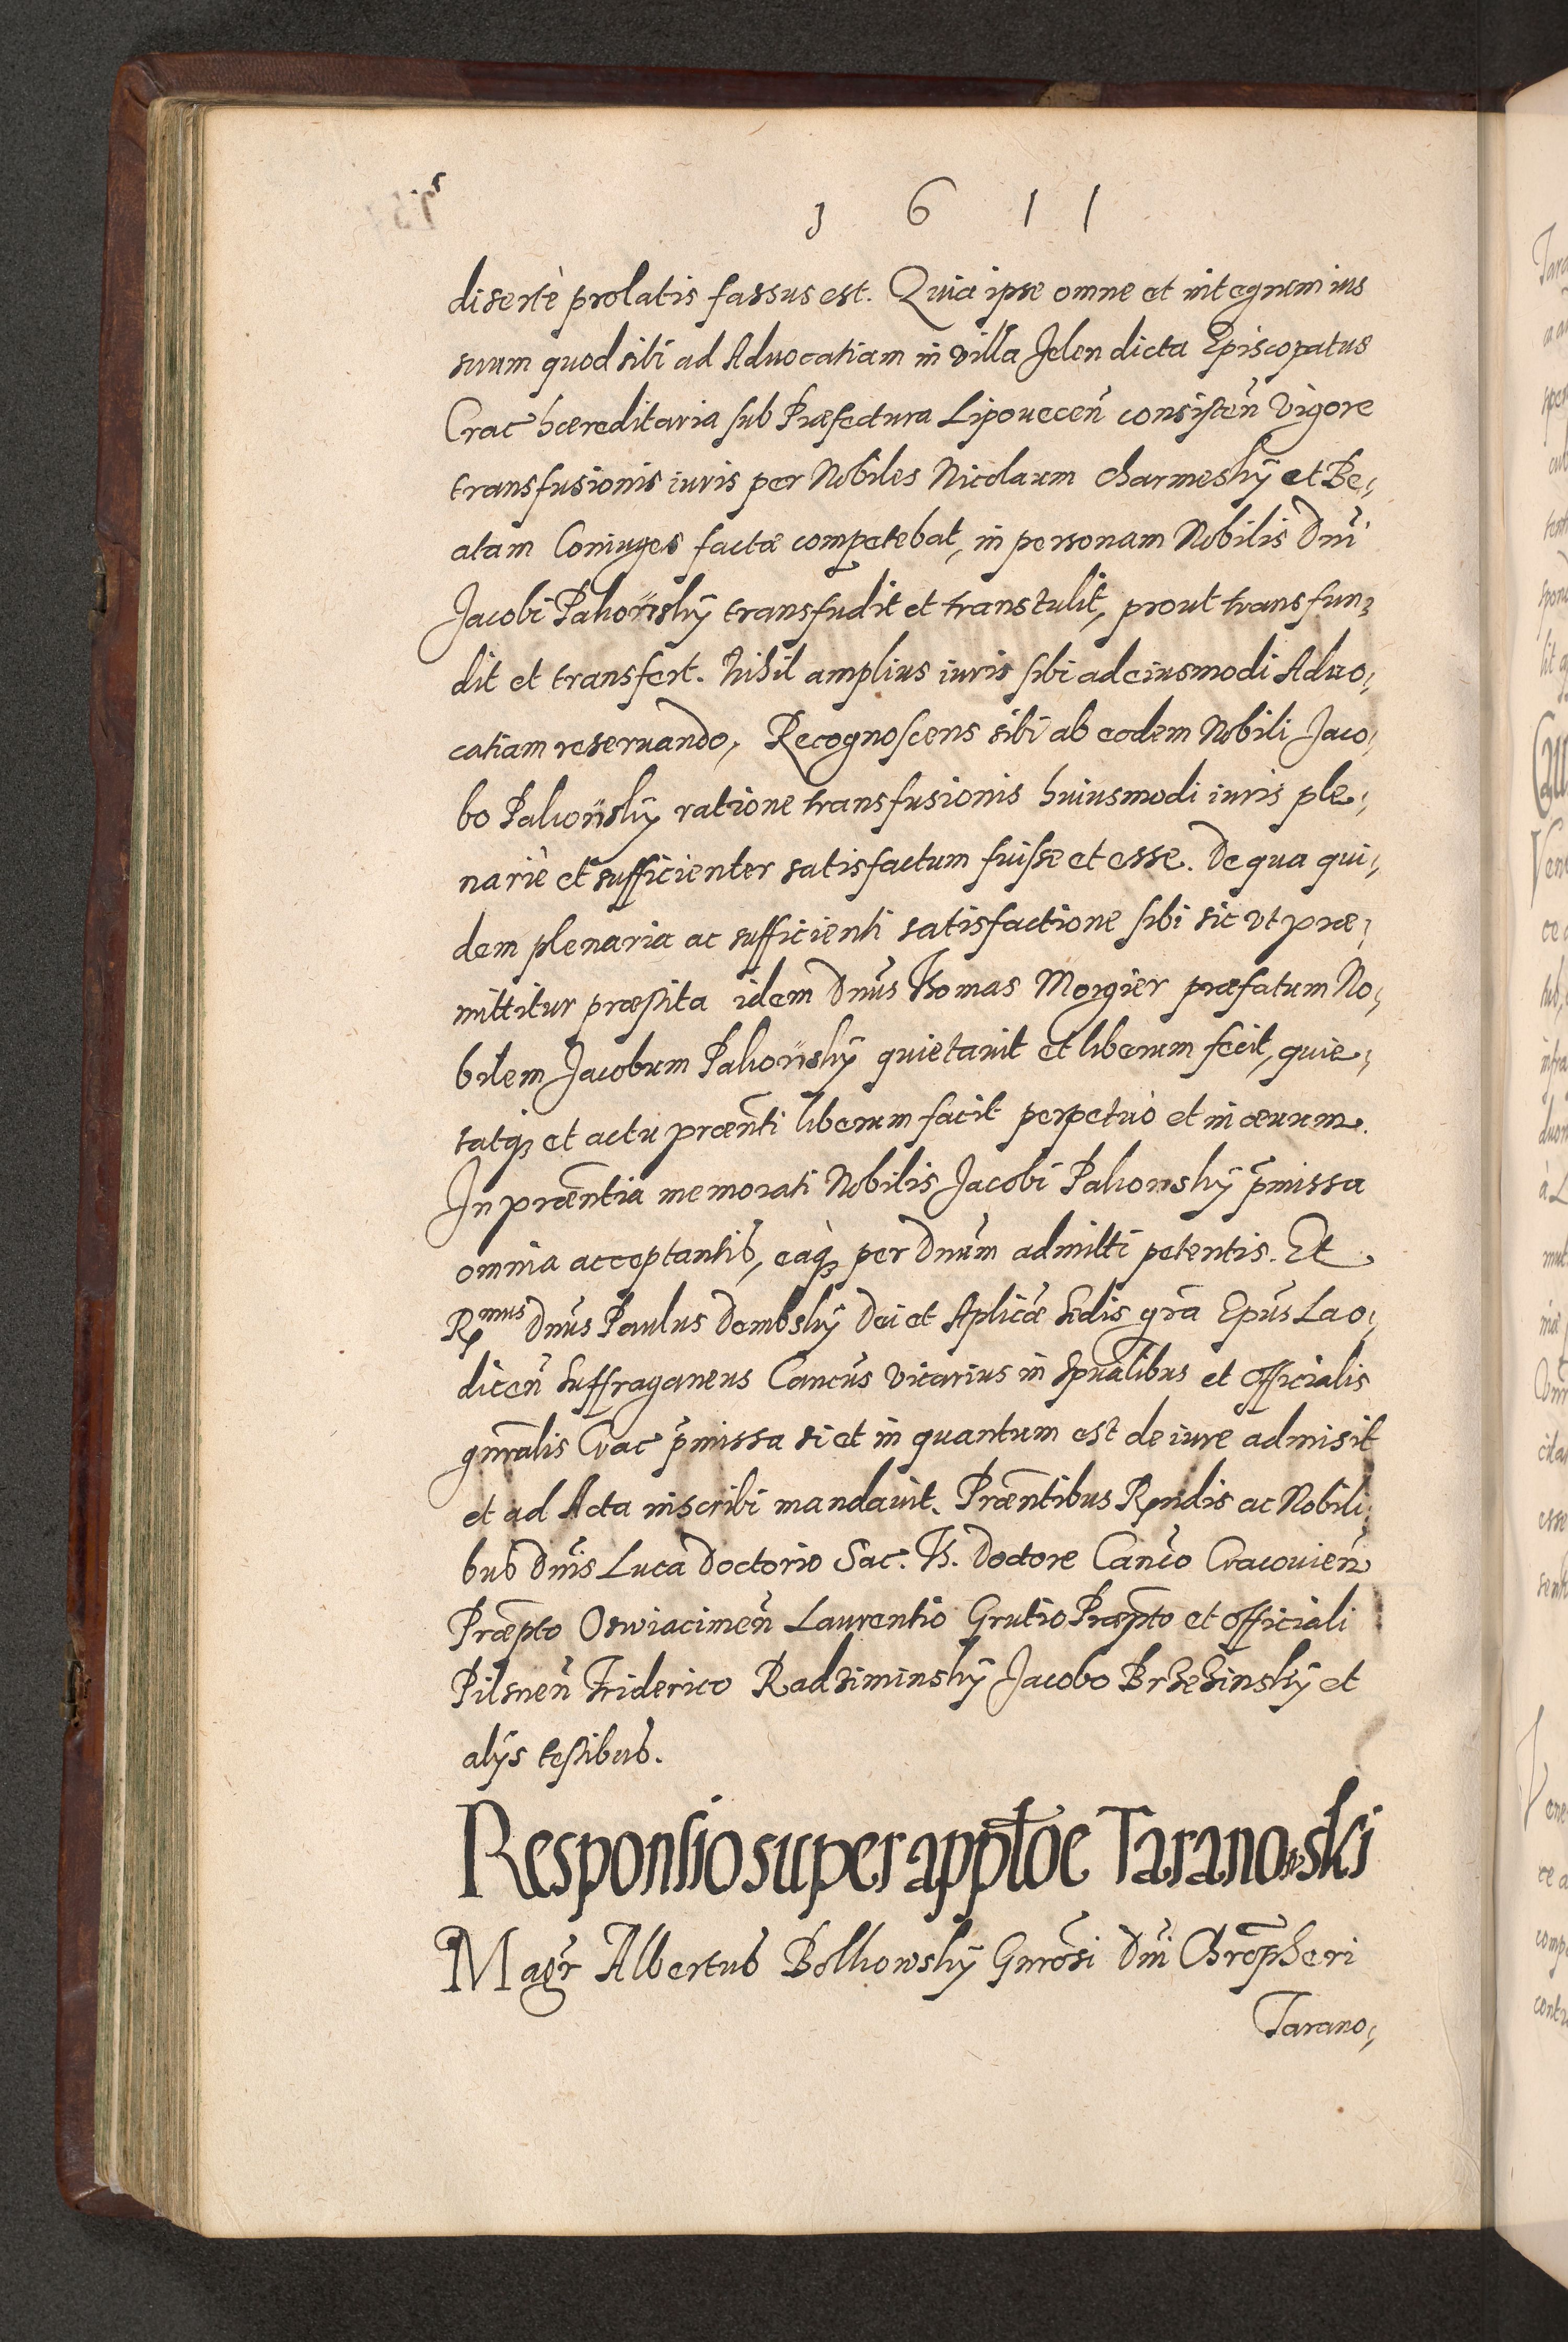 1 6 1 1
disertè prolatis fassus est. Quia ipse omne et integrum ius
suum quod sibi ad Aduocatiam in villa Jelen dicta Episcopatus
Crac hæreditaria sub Præfectura Lipouecen̄ consisten̄ vigore
transfusionis iuris per Nobiles Nicolaum Charmesky et Be,
atam Coniuges factæ competebat, in personam Nobilis Dn̄i
Jacobi Palionsky transfudit et transtulit, prout transfun,
dit et transfert. Nihil amplius iuris sibi ad eiusmodi Aduo,
catiam reseruando, Recognoscens sibi ab eodem Nobili Jaco,
bo Palionsky ratione transfusionis huiusmodi iuris ple,
nariè et sufficienter satisfactum fuisse et esse. De qua qui,
dem plenaria ac sufficienti satisfactione sibi sic vt præ,
mittitur præstita idem Dn̄us Thomas Morgier præfatum No,
bilem Jacobum Palionsky quietauit et liberum fecit, quie,
tatq₃ et actu præn̄ti liberum facit perpetuò et in æuum.
In præn̄tia memorati Nobilis Jacobi Palionsky p̄missa
omnia acceptantis, eaq₃ per Dn̄um admitti petentis. Et
R^mus Dn̄us Paulus Dembsky Dei et Aplicæ Sedis gr̄a Ep̄us Lao,
dicen̄ Suffraganeus Can̄cus Vicarius in Sp̄ualibus et Officialis
gn̄ralis Crac p̄missa si et in quantum est de iure admisit
et ad Acta inscribi mandauit. Præn̄tibus R̄ndis ac Nobili,
bus Dn̄is Luca Doctorio Sac. Th. Doctore Can̄co Cracouien̄
Præp̄to Oswiacimen̄ Laurentio Grutio Præp̄to et Officiali
Pilsnen̄ Friderico Radziminsky Jacobo Brzezinsky et
alijs testibus.
Responsio super app̄t̄oe Taranowski
Magr̄ Albertus Bolkowsky Gn̄rosi Dn̄i Chrōpheri
Tarano,